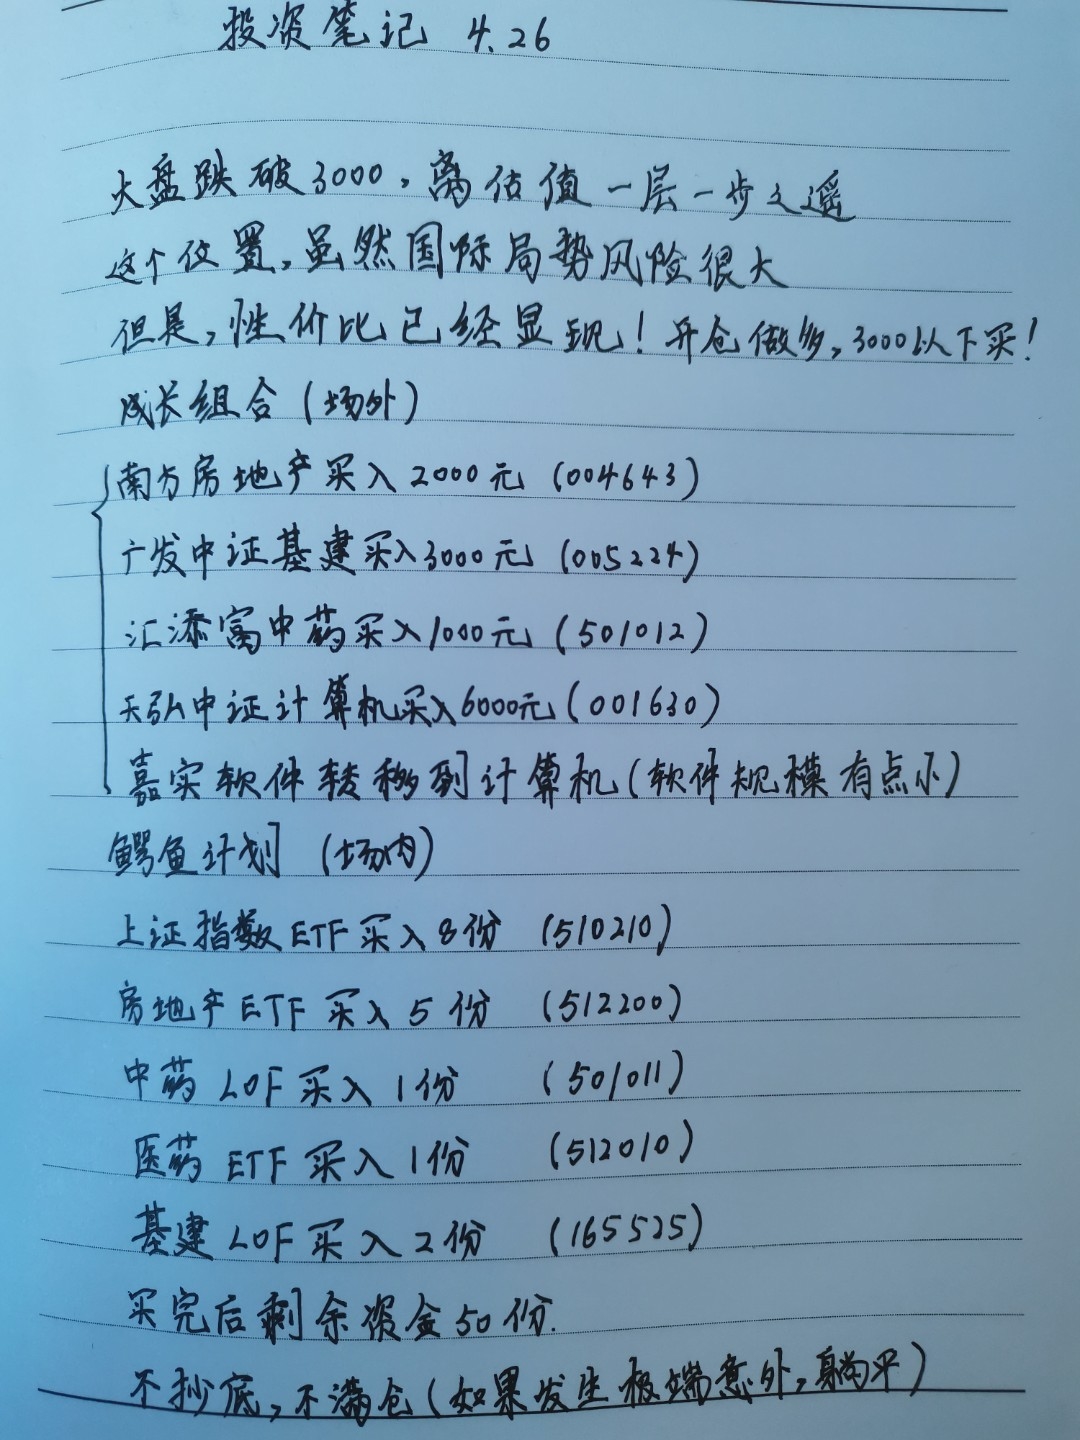 投资笔记 4.26
大盘跌破3000，离估值一层一步之遥
这个位置，虽然国际局势风险很大
但是，性价比已经显现！开仓做多，3000以下买！
成长组合（场外）
南方房地产买入2000元（004643）
广发中证基建买入3000元（005224）
汇添富中药买入1000元（501012）
天弘中证计算机买入6000元（001630）
嘉实软件转移到计算机（软件规模有点小）
鳄鱼计划（场内）
上证指数ETF买入8份（510210）
房地产ETF买入5份（512200）
中药LOF买入1份（501011）
医药ETF买入1份（512010）
基建LOF买入2份（165525）
买完后剩余资金50份.
不抄底，不满仓（如果发生极端意外，躺平）